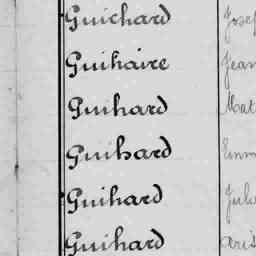 Guichard Josep
Guihaire Jean
Guihard Mat
Guihard Emm
Guihard Jule
Guihard Aris